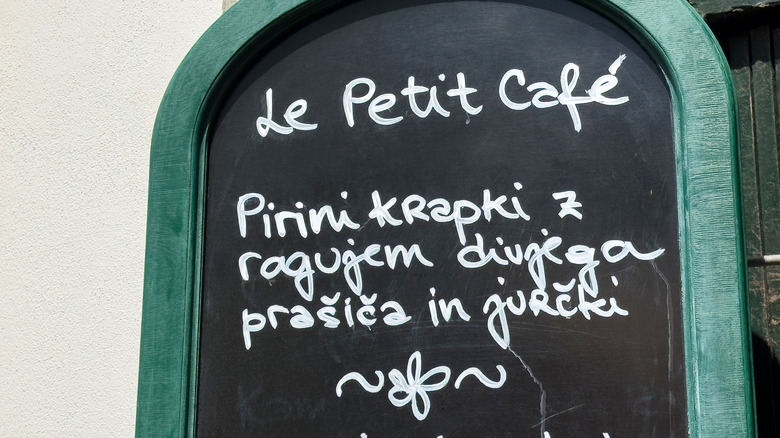 Le Petit Café
Pirini krapki z
ragujem divjega
prašiča in jurčki